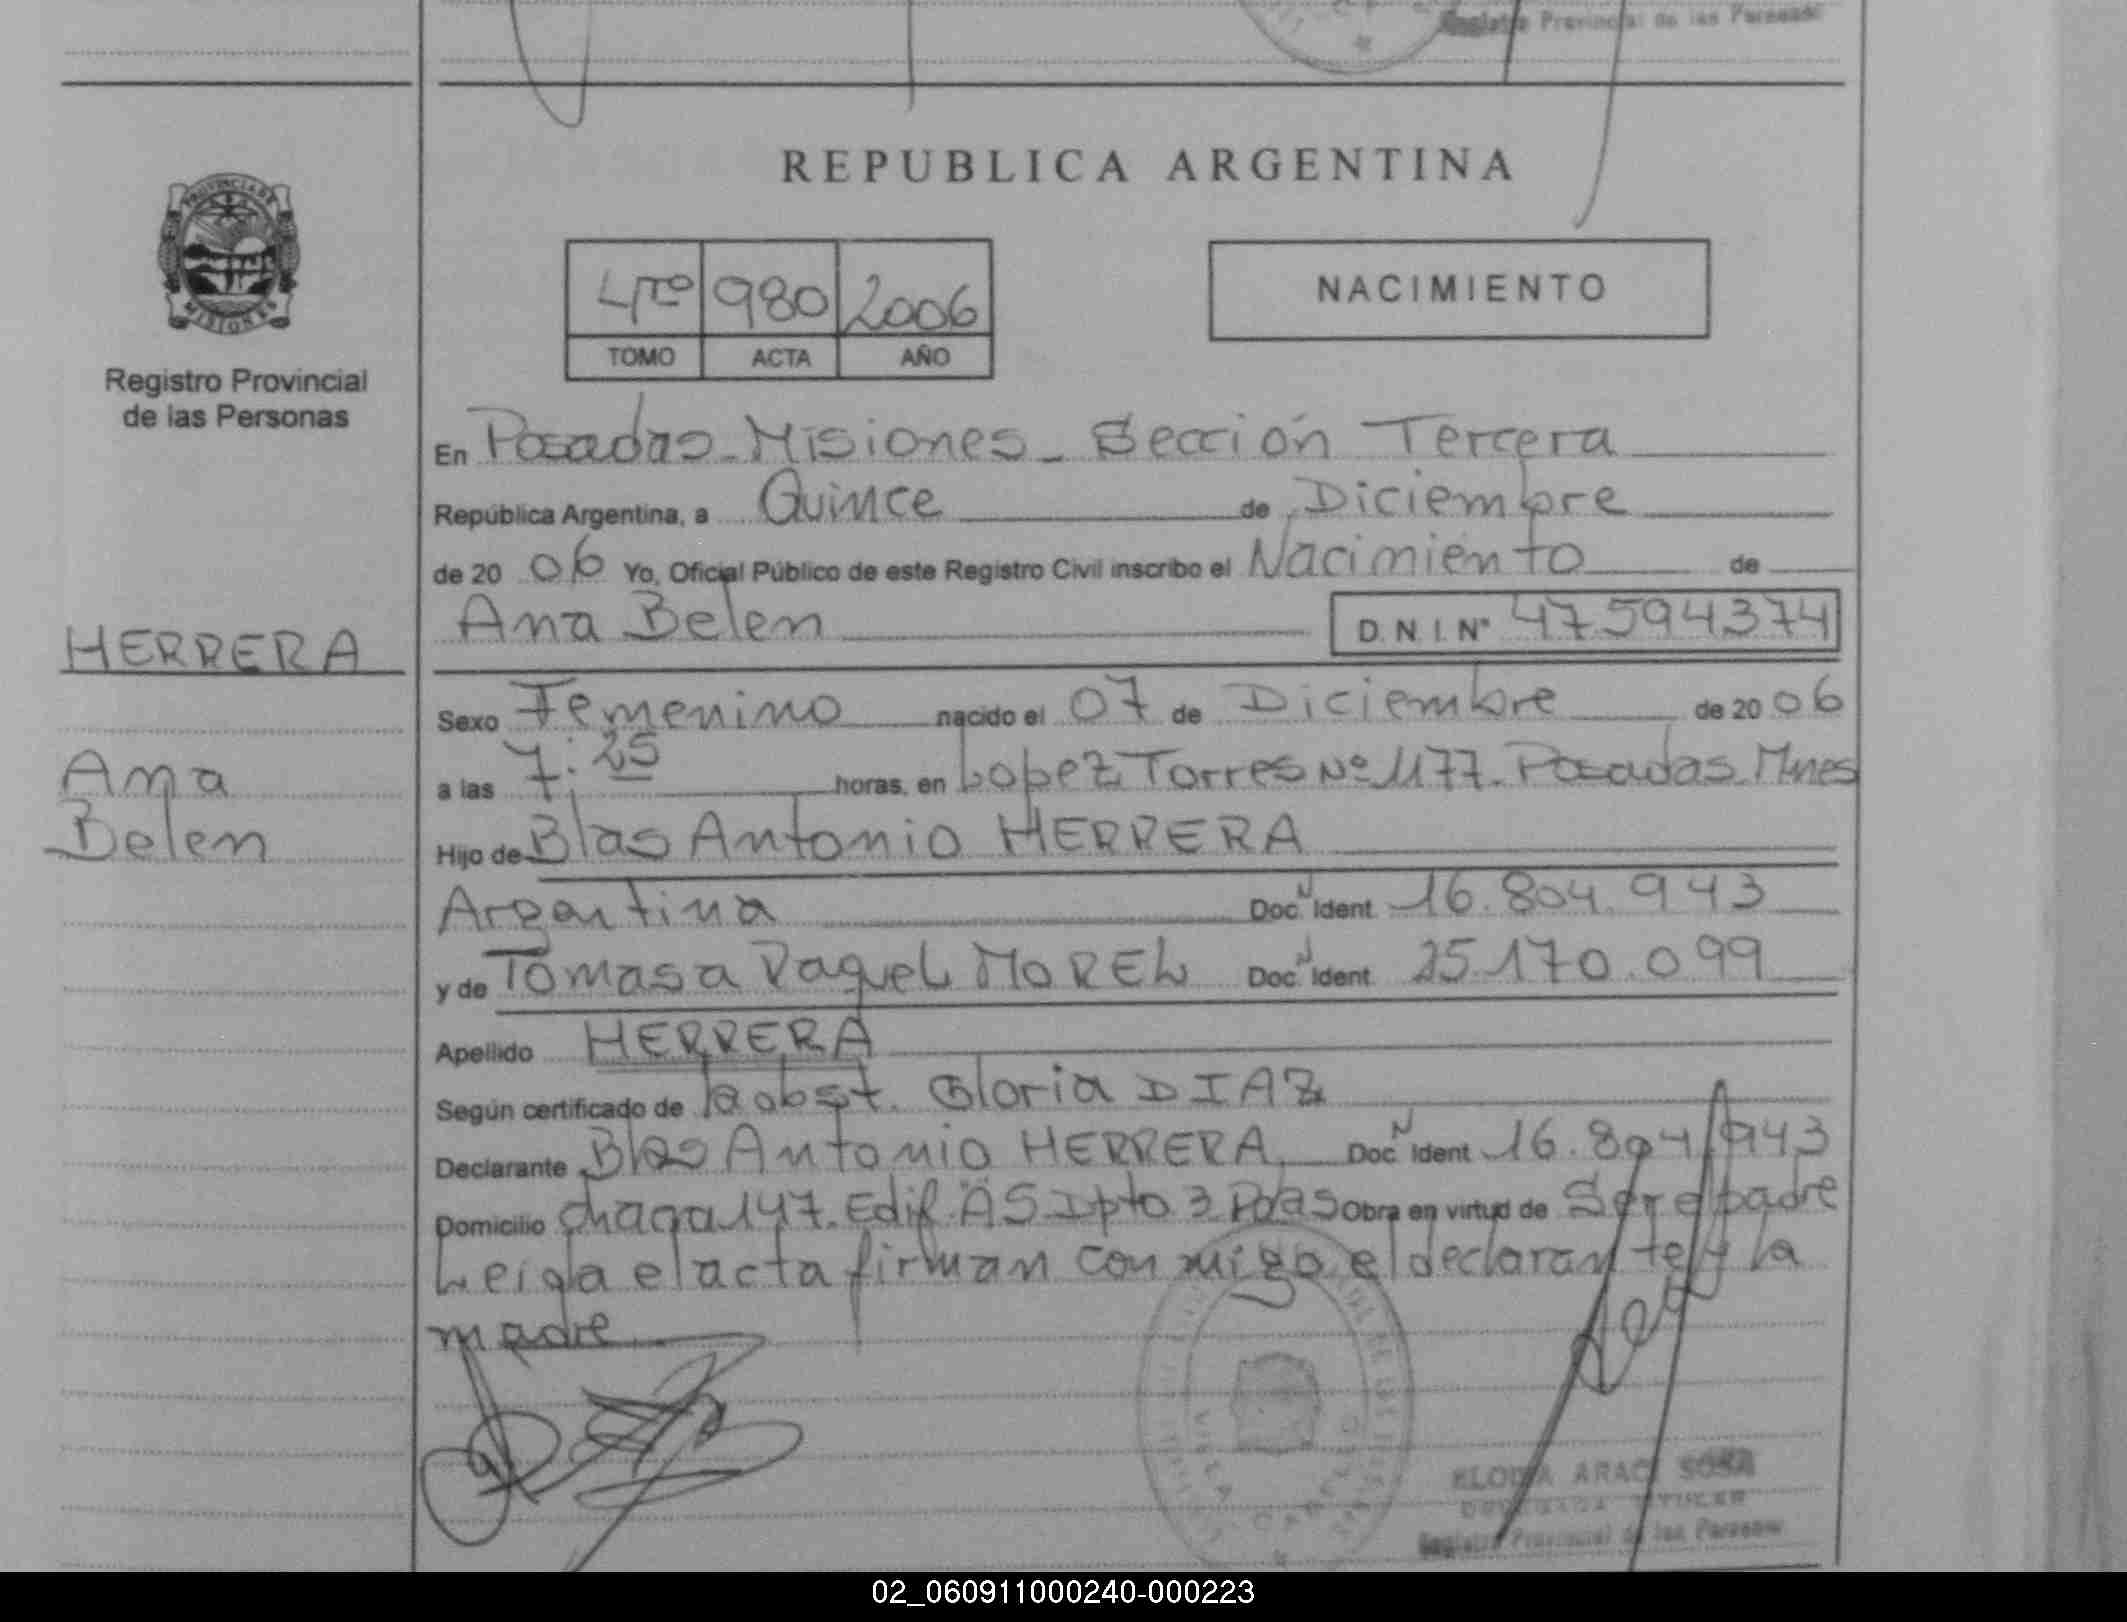 Registro Provincial de las Personas
REPUBLICA ARGENTINA
PROVINCIA DE
MISIONES
4to 980 2006
TOMO ACTA AÑO
NACIMIENTO
Registro Provincial
de las Personas
En Posadas - Misiones - Sección Tercera
República Argentina, a Quince de Diciembre
de 20 06 Yo, Oficial Público de este Registro Civil inscribo el Nacimiento de
Ana Belen D.N.I. Nº 47594374
HERRERA
Ana
Belen
Sexo Femenino nacido el 07 de Diciembre de 20 06
a las 7:25 horas, en Lopez Torres Nº 1177 - Posadas Mnes
Hijo de Blas Antonio HERRERA
Argentina Doc. N Ident 16.804.943
y de Tomasa Raquel MOREL Doc. N Ident 25.170.099
Apellido HERRERA
Según certificado de la obst. Gloria DIAZ
Declarante Blas Antonio HERRERA Doc. N Ident 16.804.943
Domicilio chaga 147. Edif. "A5 Dpto 3 Pdas Obra en virtud de Ser el padre
Leida el acta firman conmigo el declarante y la
madre
ELODIA ARACI SOSA
DELEGADA TITULAR
Registro Provincial de las Personas
02_060911000240-000223